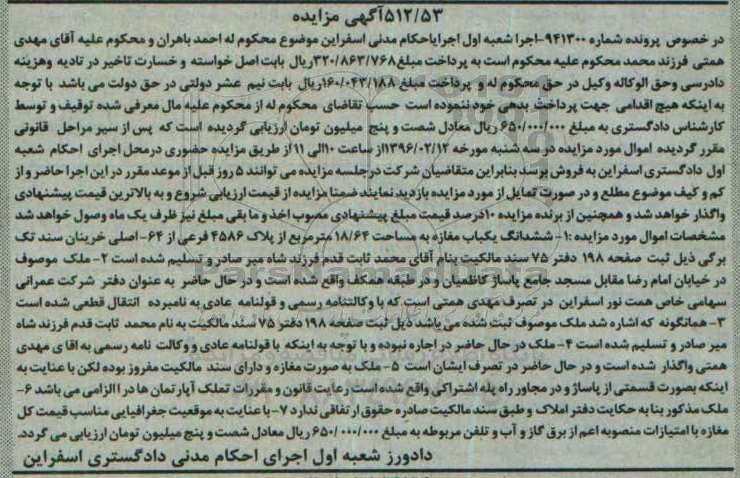 ۵۱۲/۵۳آگهی مزایده
در خصوص پرونده شماره ۹۴۱۳۰۰-اجرا شعبه اول اجرایاحکام مدنی اسفراین موضوع محکوم له احمد باهران و محکوم علیه آقای مهدی
همتی فرزند محمد محکوم علیه محکوم است به پرداخت مبلغ۳۲۰/۸۶۳/۷۶۸ریال بابت اصل خواسته و خسارت تاخیر در تادیه وهزینه
دادرسی وحق الوکاله وکیل در حق محکوم له و پرداخت مبلغ ۱۶۰/۰۴۳/۱۸۸ریال بابت نیم عشر دولتی در حق دولت می باشد با توجه
به اینکه هیچ اقدامی جهت پرداخت بدهی خود ننموده است حسب تقاضای محکوم له از محکوم علیه مال معرفی شده توقیف و توسط
کارشناس دادگستری به مبلغ ۶۵۰/۰۰۰/۰۰۰ ریال معادل شصت و پنج میلیون تومان ارزیابی گردیده است که پس از سیر مراحل قانونی
مقرر گردیده اموال مورد مزایده در سه شنبه مورخه ۱۳۹۶/۰۲/۱۲از ساعت ۱۰الی ۱۱از طریق مزایده حضوری درمحل اجرای احکام شعبه
اول دادگستری اسفراین به فروش برسد بنابراین متقاضیان شرکت درجلسه مزایده می توانند ۵ روز قبل از موعد مقرر در این اجرا حاضر و از
کم و کیف موضوع مطلع و در صورت تمایل از مورد مزایده بازدید نمایند ضمنا مزایده از قیمت ارزیابی شروع و به بالاترین قیمت پیشنهادی
واگذار خواهد شد و همچنین از برنده مزایده ۱۰درصد قیمت مبلغ پیشنهادی مصوب اخذ و ما بقی مبلغ نیز ظرف یک ماه وصول خواهد شد
مشخصات اموال مورد مزایده :۱- ششدانگ یکباب مغازه به مساحت ۱۸/۶۴ مترمربع از پلاک ۴۵۸۶ فرعی از ۶۴- اصلی خرینان سند تک
برگی ذیل ثبت صفحه ۱۹۸ دفتر ۷۵ سند مالکیت بنام آقای محمد ثابت قدم فرزند شاه میر صادر و تسلیم شده است ۲- ملک موصوف
در خیابان امام رضا مقابل مسجد جامع پاساژ کاظمیان و در طبقه همکف واقع شده است و در حال حاضر به عنوان دفتر شرکت عمرانی
سهامی خاص همت نور اسفراین در تصرف مهدی همتی است که با وکالتنامه رسمی و قولنامه عادی به نامبرده انتقال قطعی شده است
۳- همانگونه که اشاره شد ملک موصوف ثبت شده می باشد ذیل ثبت صفحه ۱۹۸ دفتر ۷۵ سند مالکیت به نام محمد ثابت قدم فرزند شاه
میر صادر و تسلیم شده است ۴- ملک در حال حاضر در اجاره نبوده و با توجه به اینکه با قولنامه عادی و وکالت نامه رسمی به اقا ی مهدی
همتی واگذار شده است و در حال حاضر در تصرف ایشان است ۵- ملک به صورت مغازه و دارای سند مالکیت مفروز بوده لکن با عنایت به
اینکه بصورت قسمتی از پاساژ و در مجاور راه پله اشتراکی واقع شده است رعایت قانون و مقررات تملک آپارتمان ها در ا الزامی می باشد ۶-
ملک مذکور بنا به حکایت دفتر املاک و طبق سند مالکیت صادره حقوق ار تفاقی ندارد ۷- با عنایت به موقعیت جغرافیایی مناسب قیمت کل
مغازه با امتیازات منصوبه اعم از برق گاز و آب و تلفن مربوطه به مبلغ ۶۵۰/۰۰۰/۰۰۰ ریال معادل شصت و پنج میلیون تومان ارزیابی می گردد.
دادورز شعبه اول اجرای احکام مدنی دادگستری اسفراین
ParsNamadData